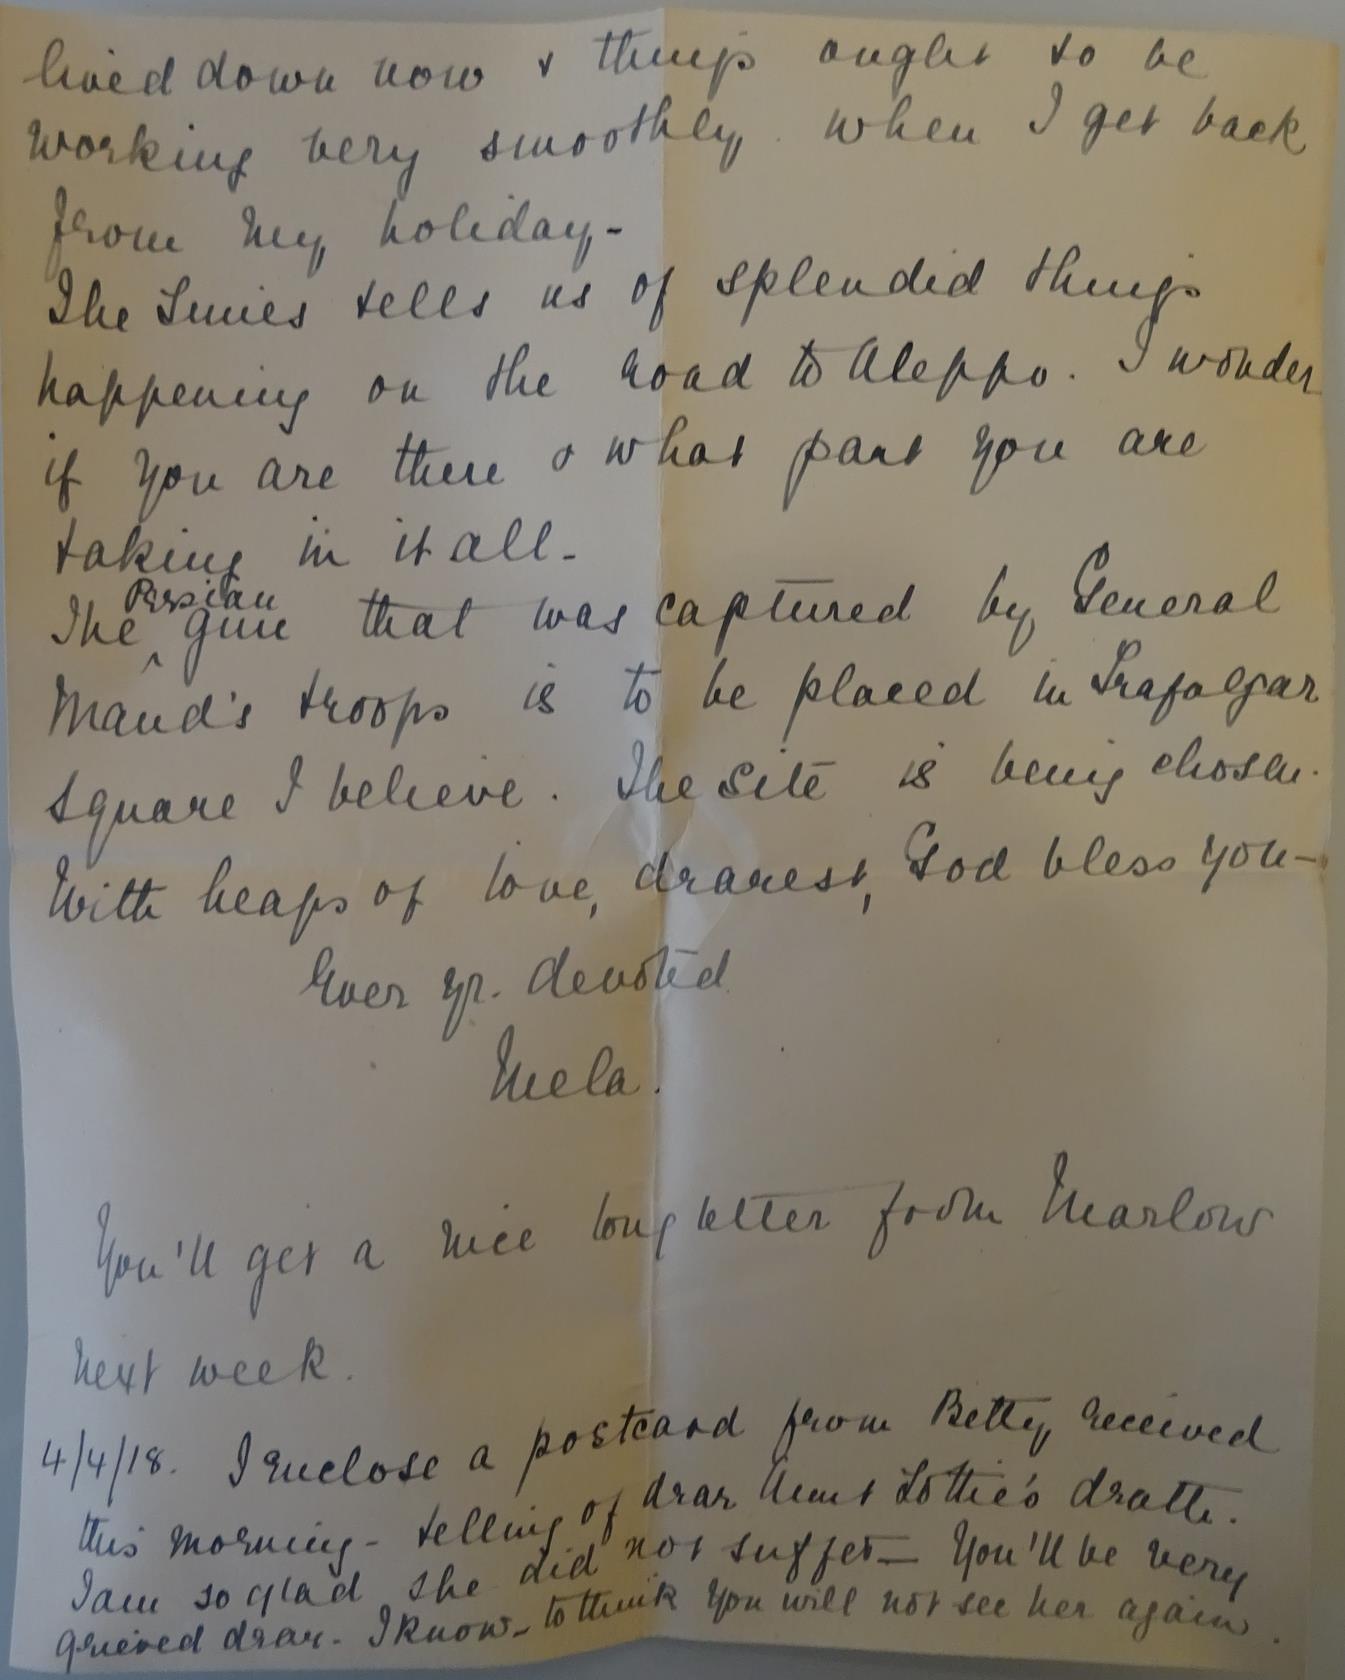 lived down now & things ought to be
working very smoothly when I get back
from my holiday -
The Times tells us of splendid things
happening on the road to Aleppo. I wonder
if you are there & what part you are
taking in it all -
The Persian gun that was captured by General
Maud's troops is to be placed in Trafalgar
Square I believe. The site is being chosen.
With heaps of love, dearest, God bless you -
Ever yr. devoted
Mela.
You'll get a nice long letter from Marlow
next week.
4/4/18. I enclose a postcard from Betty, received
this morning - telling of dear Aunt Lottie's death.
I am so glad she did not suffer - You'll be very
grieved dear - I know - to think you will not see her again.